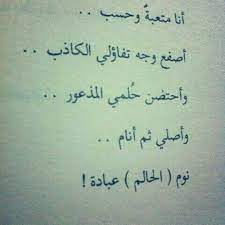 أنا متعبةٌ وحسب . .
أصفع وجه تفاؤلي الكاذب . .
وأحتضن حُلمي المذعور . .
وأصلي ثم أنام . .
نوم ( الحالم ) عبادة !